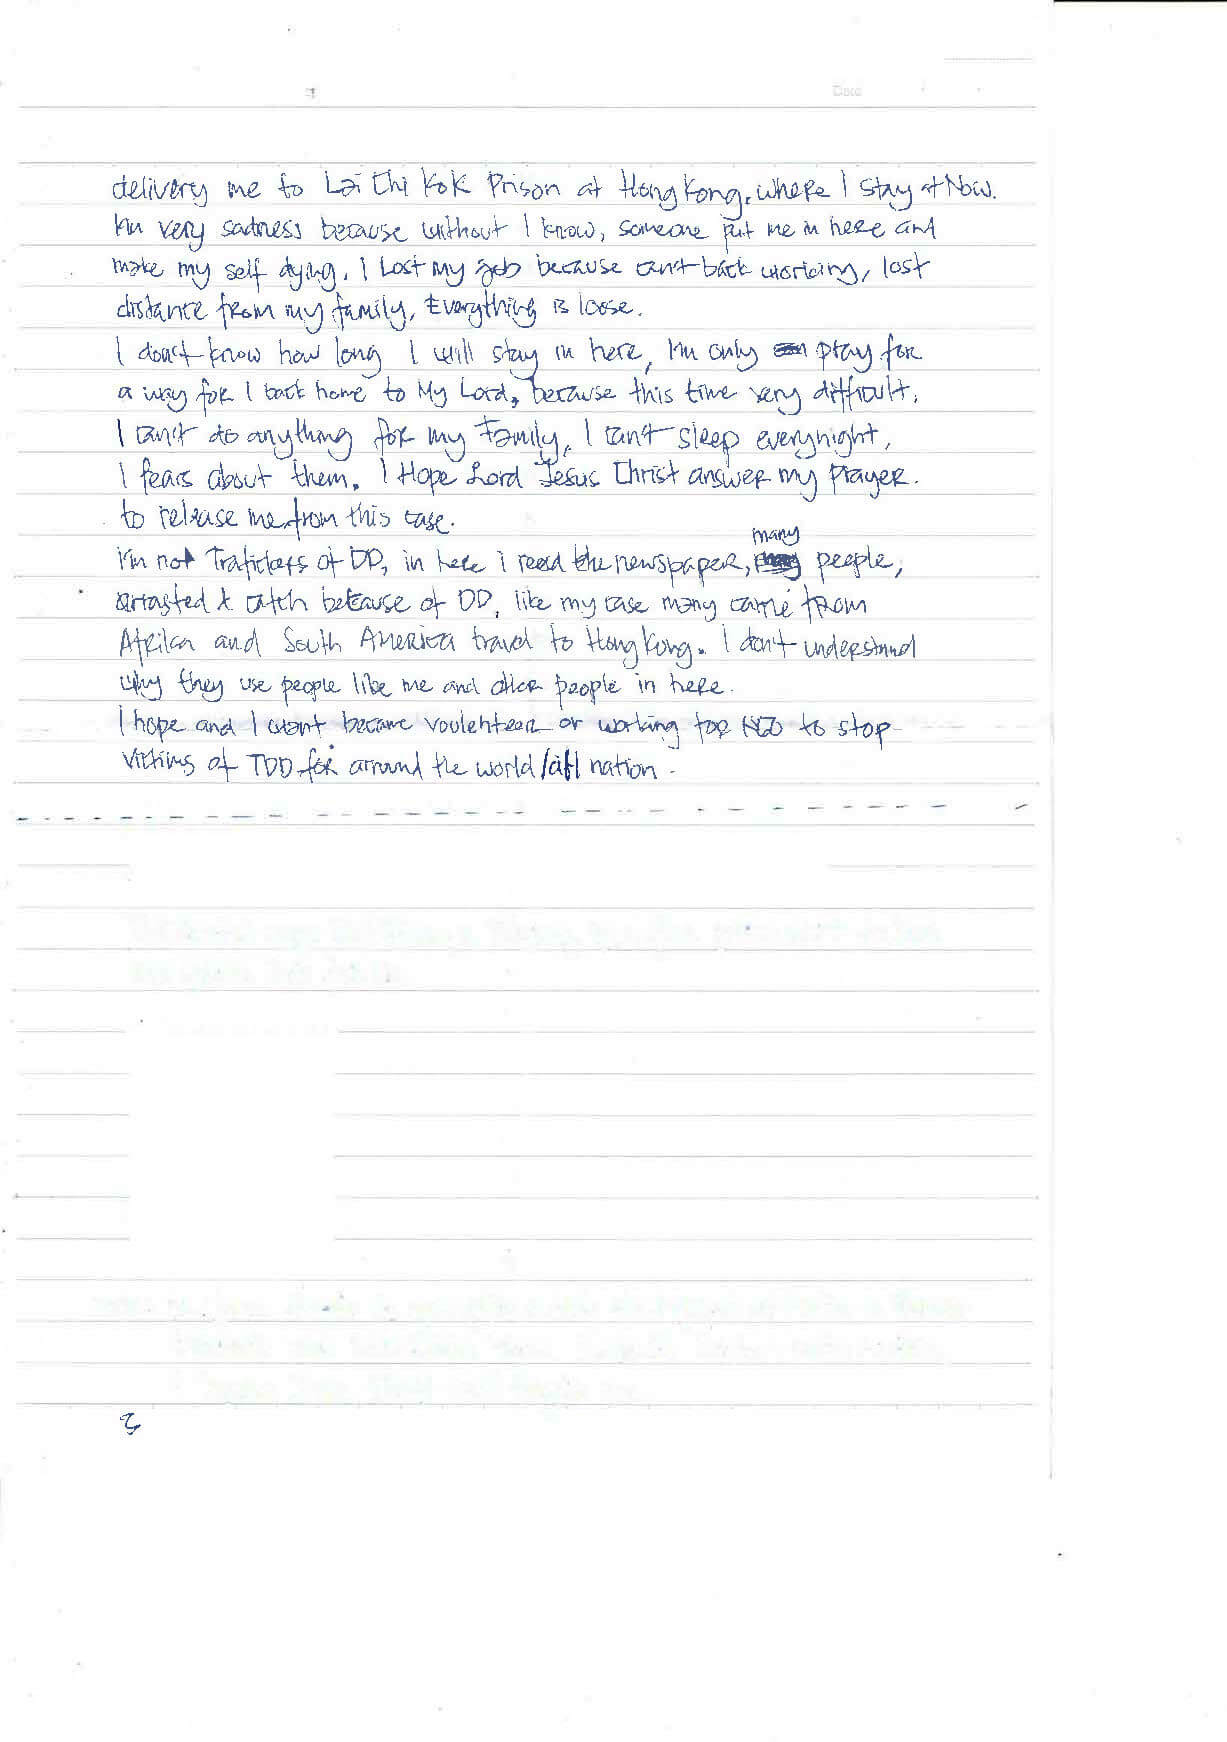 Date
delivery me to Lai Chi Kok Prison at Hong Kong, where I stay at Now.
I'm very sadness because without I know, someone put me in here and
make my self dying. I Lost my job because can't back working, lost
distance from my family, Everything is loose.
I don't know how long I will stay in here, I'm only pray for
a way for I back home to My Lord, because this time very difficult.
I can't do anything for my Family, I can't sleep everynight,
I fears about them. I Hope Lord Jesus Christ answer my prayer.
to release me from this case.
many
I'm not Trafickers of DD, in here i read the newspaper, people,
arrasted & catch because of DD, like my case many came from
Afrika and South America travel to Hong Kong. I don't understand
why they use people like me and other people in here.
I hope and I want became voulenteer or working for NGO to stop
Victims of TDD for arround the world/all nation.